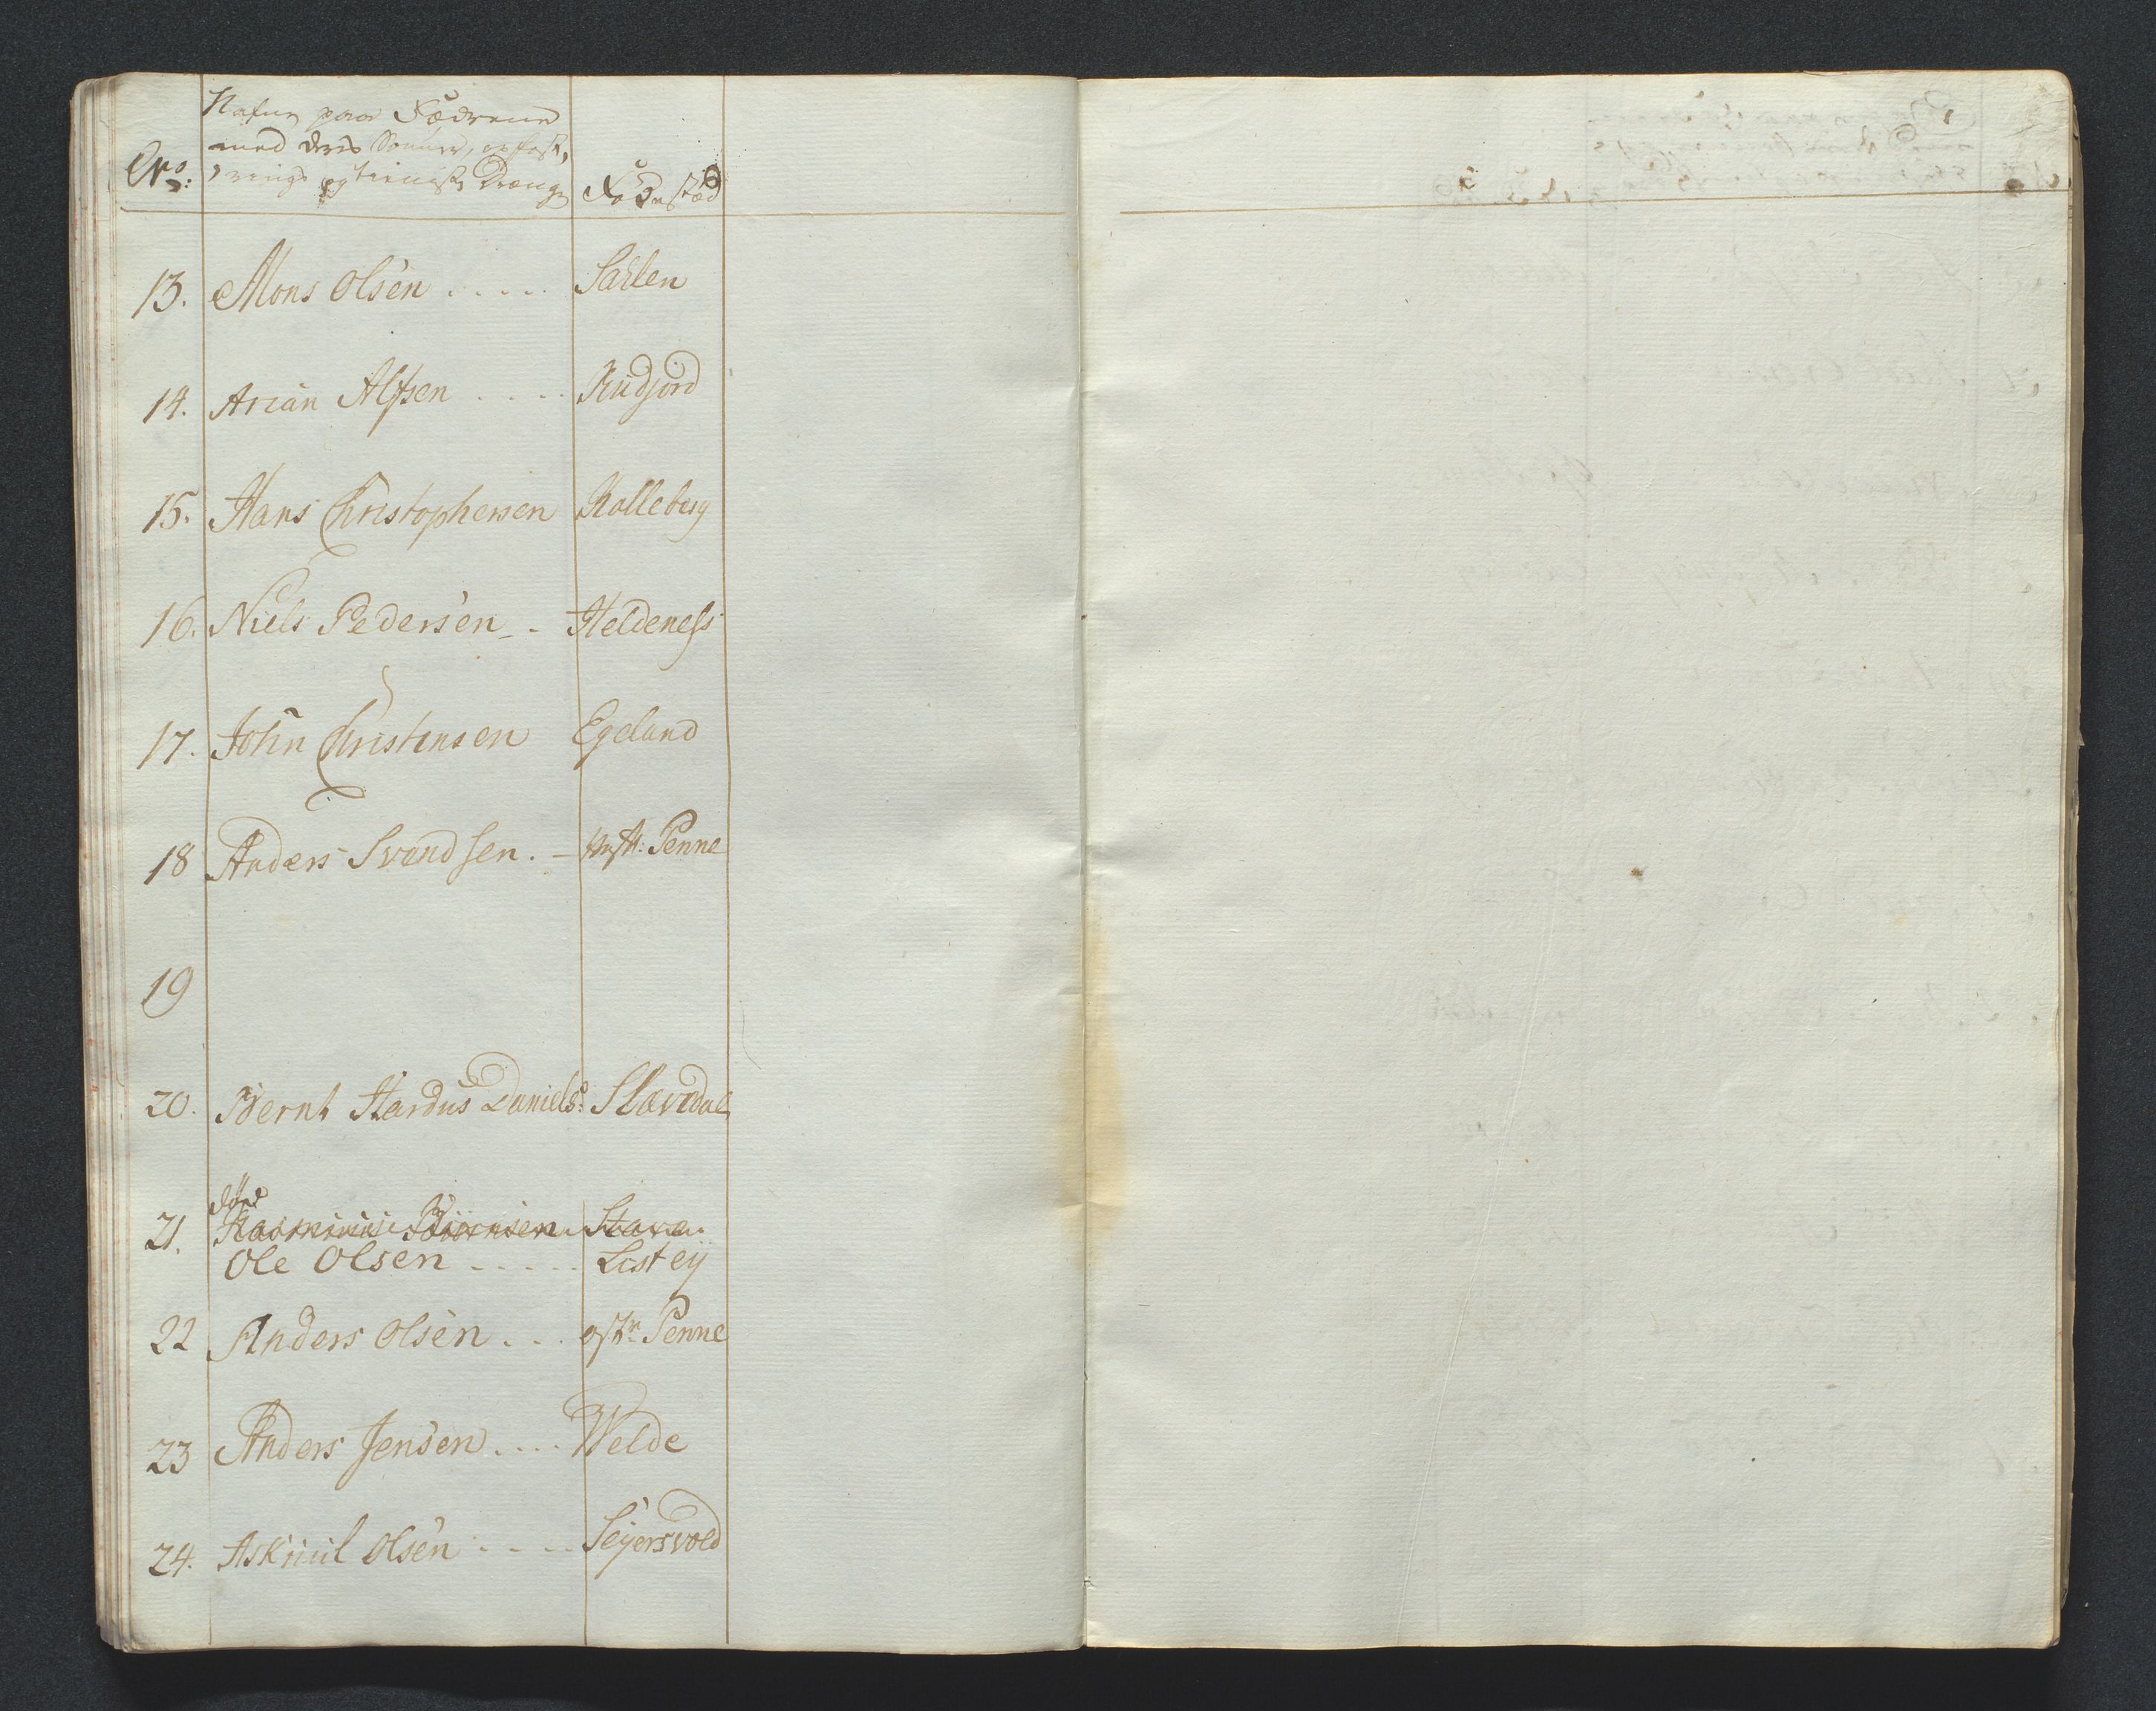 Nafne paa Fædrene
med deres Sønner, opfost,
rings og tienist Drenge
No:
Fødestæd
13. Mons Olsen ..... Sahlen
14. Arian Alfsen .... Rudjord
15. Hans Christophersen Kolleberg
16. Niels Pedersen - . Heldeness
17. John Christensen Egeland
18 Anders Svendsen . - Penne
19
20. Bernt Hardus Daniels: Slavedal
død
21. Rasmus Biørnsen Stava
Ole Olsen ..... Listeÿ
22 Anders Olsen ... østr Penne
23 Anders Jensen .... Welde
24. Askiuil Olsen .... Seÿersvold